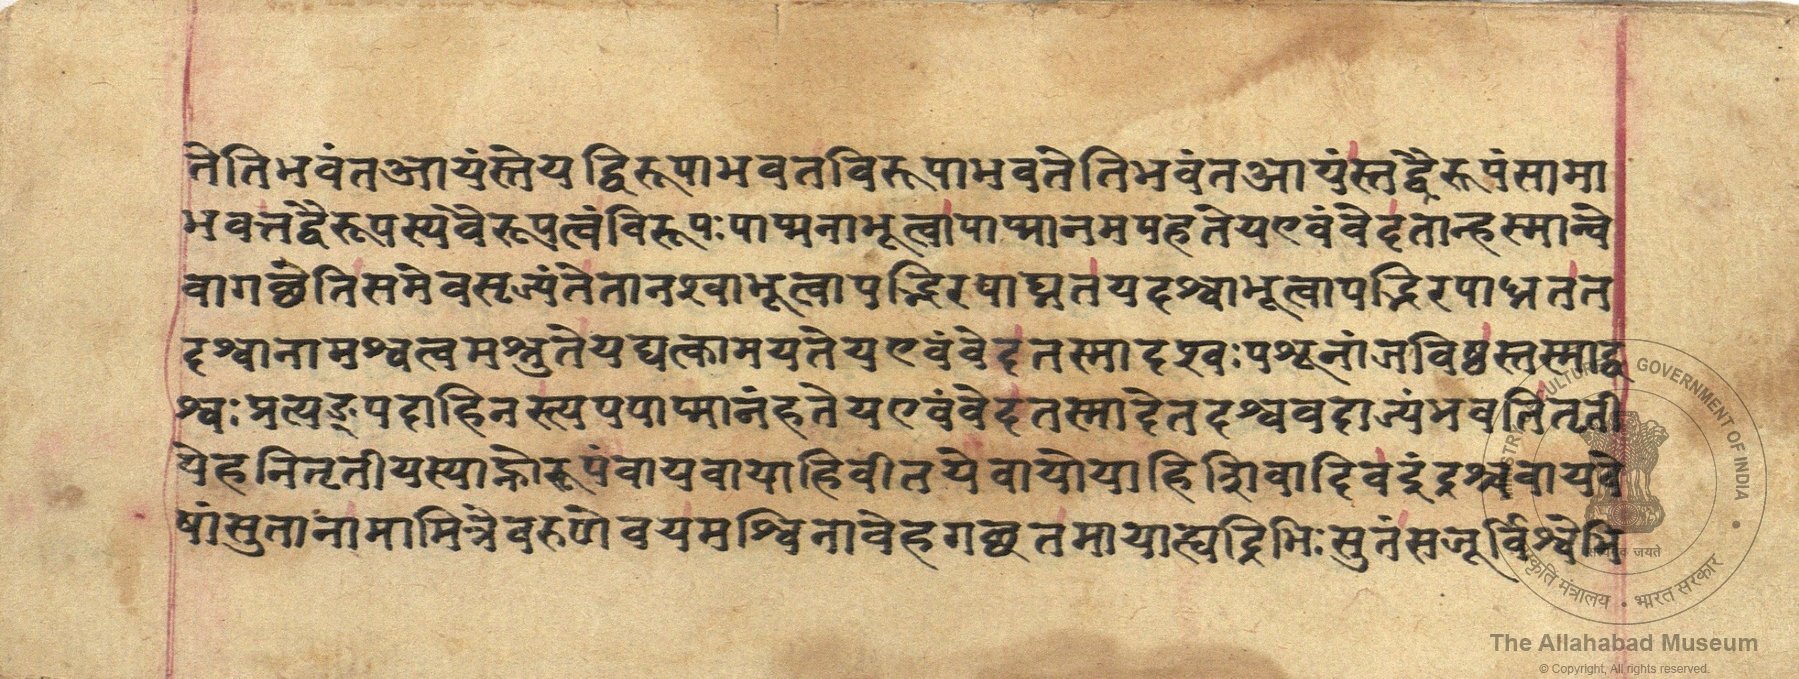 तेतिभवंतआयंस्तेयद्विरूपाभवतविरूपाभवतेतिभवंतआयंस्तद्वैरूपंसामा
भवत्तद्वैरूपस्यवैरूपत्वंविरूपःपाप्मनाभूत्वापाप्मानमपहतेयएवंवेदतान्हस्मान्वे
वागछंतिसमेवसृज्यंतेतानश्वाभूत्वापद्भिरपाघ्नतयदश्वाभूत्वापद्भिरपाघ्नतत
दश्वानामश्वत्वमश्नुतेयद्यत्कामयतेयएवंवेदतस्मादश्वःपशूनांजविष्ठस्तस्माद
श्वःप्रत्यङ्पदाहिनस्त्यपपाप्मानंहतेयएवंवेदतस्मादेतदश्ववदाज्यंभवतितृती
येहनितृतीयस्याह्नोरूपंवायवायाहिवीतयेवायोयाहिशिवादिवइंद्रश्चवायवे
षांसुतानामामित्रेवरुणेवयमश्विनावेहगछतमायाह्यद्रिभिःसुतंसजूर्विश्वेभि
संस्कृति मंत्रालय • भारत सरकार
सत्यमेव जयते
GOVERNMENT OF INDIA
The Allahabad Museum
© Copyright, All rights reserved.